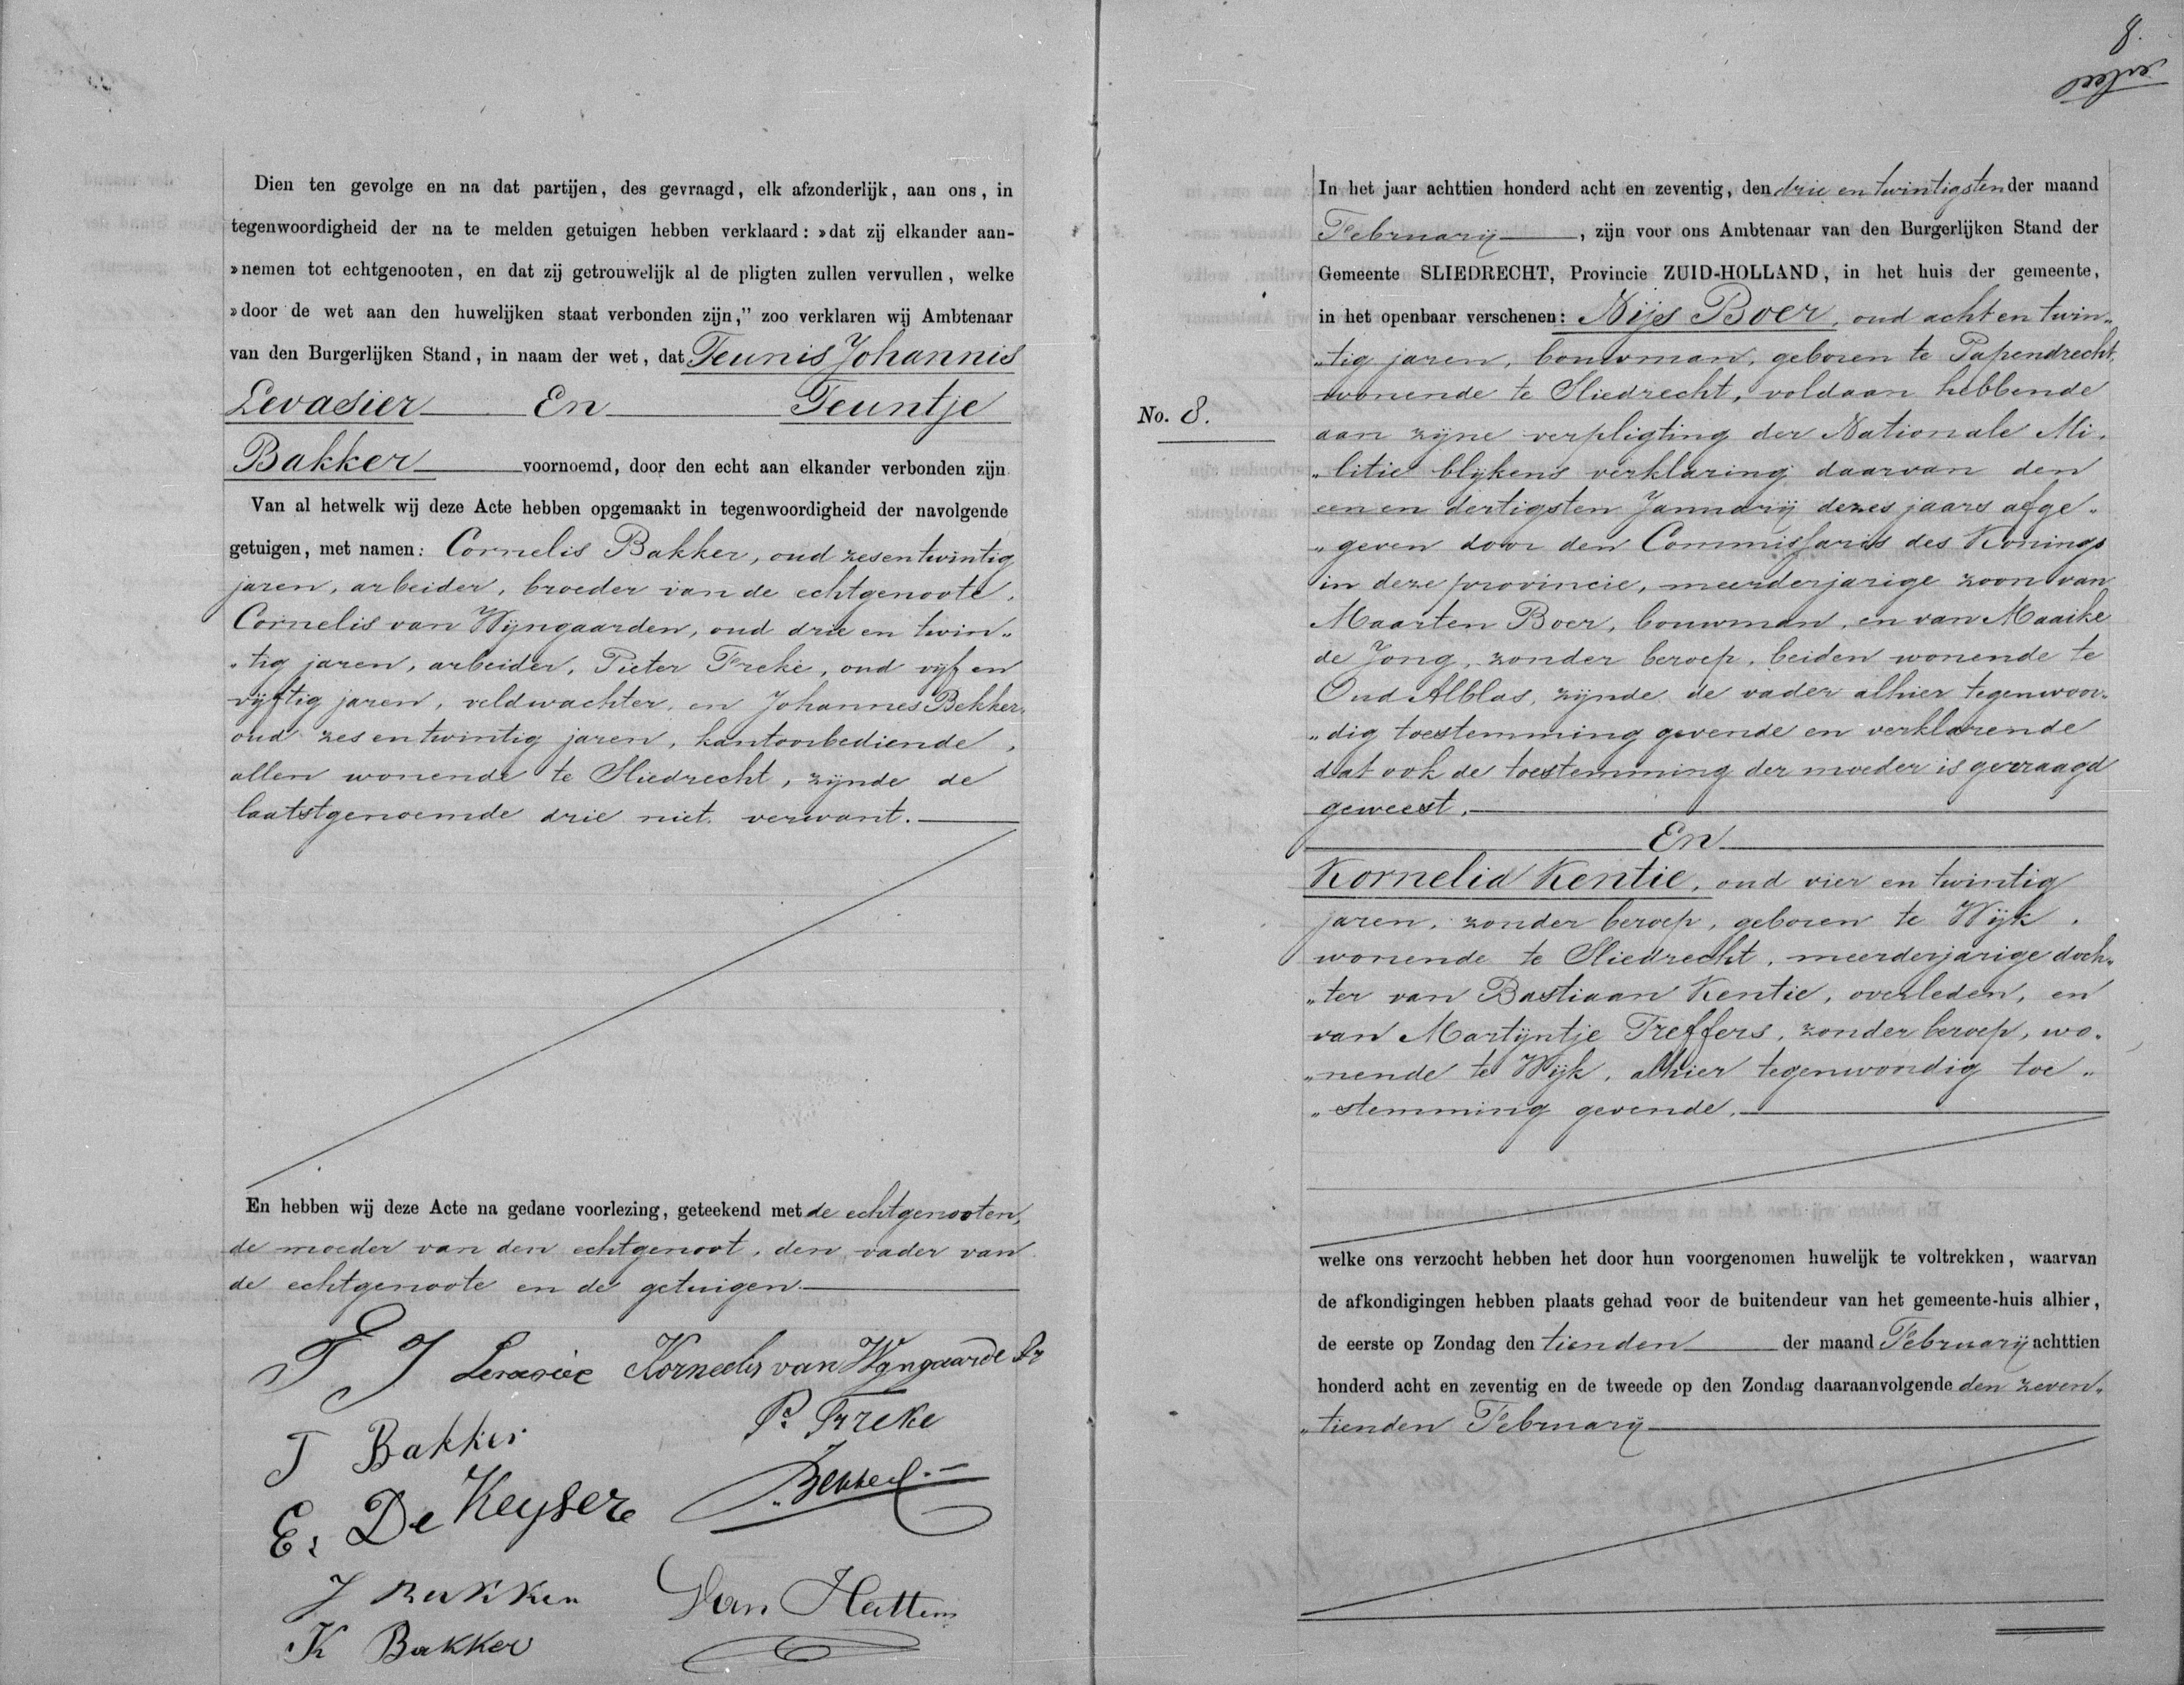 Dien ten gevolge en na dat partijen, des gevraagd, elk afzonderlijk, aan ons, in
tegenwoordigheid der na te melden getuigen hebben verklaard: »dat zij elkander aan-
»nemen tot echtgenooten, en dat zij getrouwelijk al de pligten zullen vervullen, welke
»door de wet aan den huwelijken staat verbonden zijn,” zoo verklaren wij Ambtenaar
van den Burgerlijken Stand, in naam der wet, dat Teunis Johannis
Levasier En Teuntje
Bakker voornoemd, door den echt aan elkander verbonden zijn
Van al hetwelk wij deze Acte hebben opgemaakt in tegenwoordigheid der navolgende
getuigen, met namen: Cornelis Bakker, oud zesentwintig
jaren, arbeider, broeder van de echtgenoote,
Cornelis van Wijngaarden, oud drie en twin„
„tig jaren, arbeider, Pieter Freke, oud vijf en
vijftig jaren, veldwachter, en Johannes Bekker,
oud zes en twintig jaren, kantoorbediende,
allen wonende te Sliedrecht, zijnde de
laatstgenoemde drie niet verwant.
En hebben wij deze Acte na gedane voorlezing, geteekend met de echtgenooten,
de moeder van den echtgenoot, den vader van
de echtgenoote en de getuigen.
T J Levasier Kornelis van Wyngaarde Jr
T Bakker P. Freke
E. De Keyser Bekker
J Bakker Van Hattem
K Bakker
8.
No. 8.
In het jaar achttien honderd acht en zeventig, den drie en twintigsten der maand
Februarij, zijn voor ons Ambtenaar van den Burgerlijken Stand der
Gemeente SLIEDRECHT, Provincie ZUID-HOLLAND, in het huis der gemeente,
in het openbaar verschenen: Nijs Boer, oud acht en twin„
„tig jaren, bouwman, geboren te Papendrecht,
wonende te Sliedrecht, voldaan hebbende
aan zijne verpligting der Nationale Mi„
„litie blijkens verklaring daarvan den
een en dertigsten Januarij dezes jaars afge„
„geven door den Commissaris des Konings
in deze provincie, meerderjarige zoon van
Maarten Boer, bouwman, en van Maaike
de Jong, zonder beroep, beiden wonende te
Oud Alblas, zijnde de vader alhier tegenwoor„
„dig toestemming gevende en verklarende
dat ook de toestemming der moeder is gevraagd
geweest.
En
Kornelia Kentie, oud vier en twintig
jaren, zonder beroep, geboren te Wijk,
wonende te Sliedrecht, meerderjarige doch„
„ter van Bastiaan Kentie, overleden, en
van Martijntje Treffers, zonder beroep, wo„
„nende te Wijk, alhier tegenwoordig toe„
„stemming gevende.
welke ons verzocht hebben het door hun voorgenomen huwelijk te voltrekken, waarvan
de afkondigingen hebben plaats gehad voor de buitendeur van het gemeente-huis alhier,
de eerste op Zondag den tienden der maand Februarij achttien
honderd acht en zeventig en de tweede op den Zondag daaraanvolgende den zeven„
„tienden Februarij